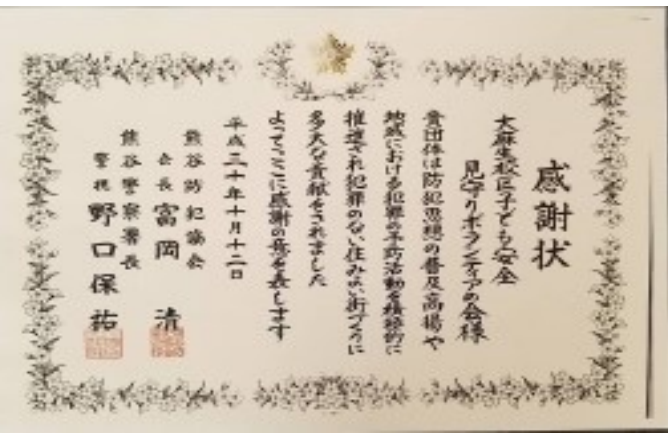 感謝状
大麻生校区子ども安全
見守りボランティアの会様
貴団体は防犯思想の普及高揚や
地域における犯罪の予防活動を積極的に
推進され犯罪のない住みよい街づくりに
多大な貢献をされました
よってここに感謝の意を表します
平成三十年十月十二日
熊谷防犯協会
会長 富岡 清
熊谷警察署長
警視 野口保祐